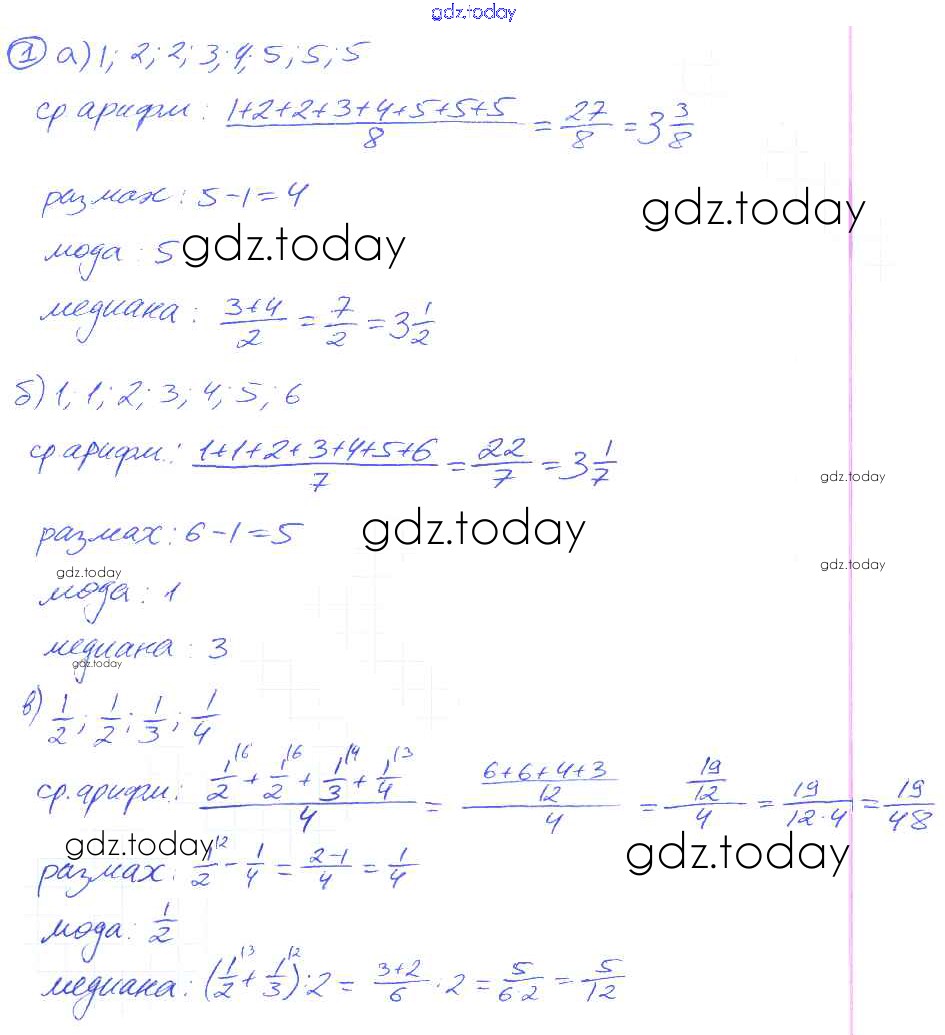 gdz.today
1 а) 1; 2; 2; 3; 4; 5; 5; 5
ср арифм: (1+2+2+3+4+5+5+5)/8 = 27/8 = 3 3/8
gdz.today
размах: 5-1=4
мода: 5 gdz.today
медиана: (3+4)/2 = 7/2 = 3 1/2
б) 1; 1; 2; 3; 4; 5; 6
ср арифм.: (1+1+2+3+4+5+6)/7 = 22/7 = 3 1/7
gdz.today
размах: 6-1=5 gdz.today
gdz.today gdz.today
мода: 1
медиана: 3
gdz.today
в) 1/2; 1/2; 1/3; 1/4
ср. арифм.: (1/2 \6 + 1/2 \6 + 1/3 \4 + 1/4 \3)/4 = ((6+6+4+3)/12)/4 = (19/12)/4 = 19/(12·4) = 19/48
gdz.today gdz.today
размах: 1/2 \2 - 1/4 = (2-1)/4 = 1/4
мода: 1/2
медиана: (1/2 \3 + 1/3 \2) : 2 = (3+2)/6 · 2 = 5/(6·2) = 5/12